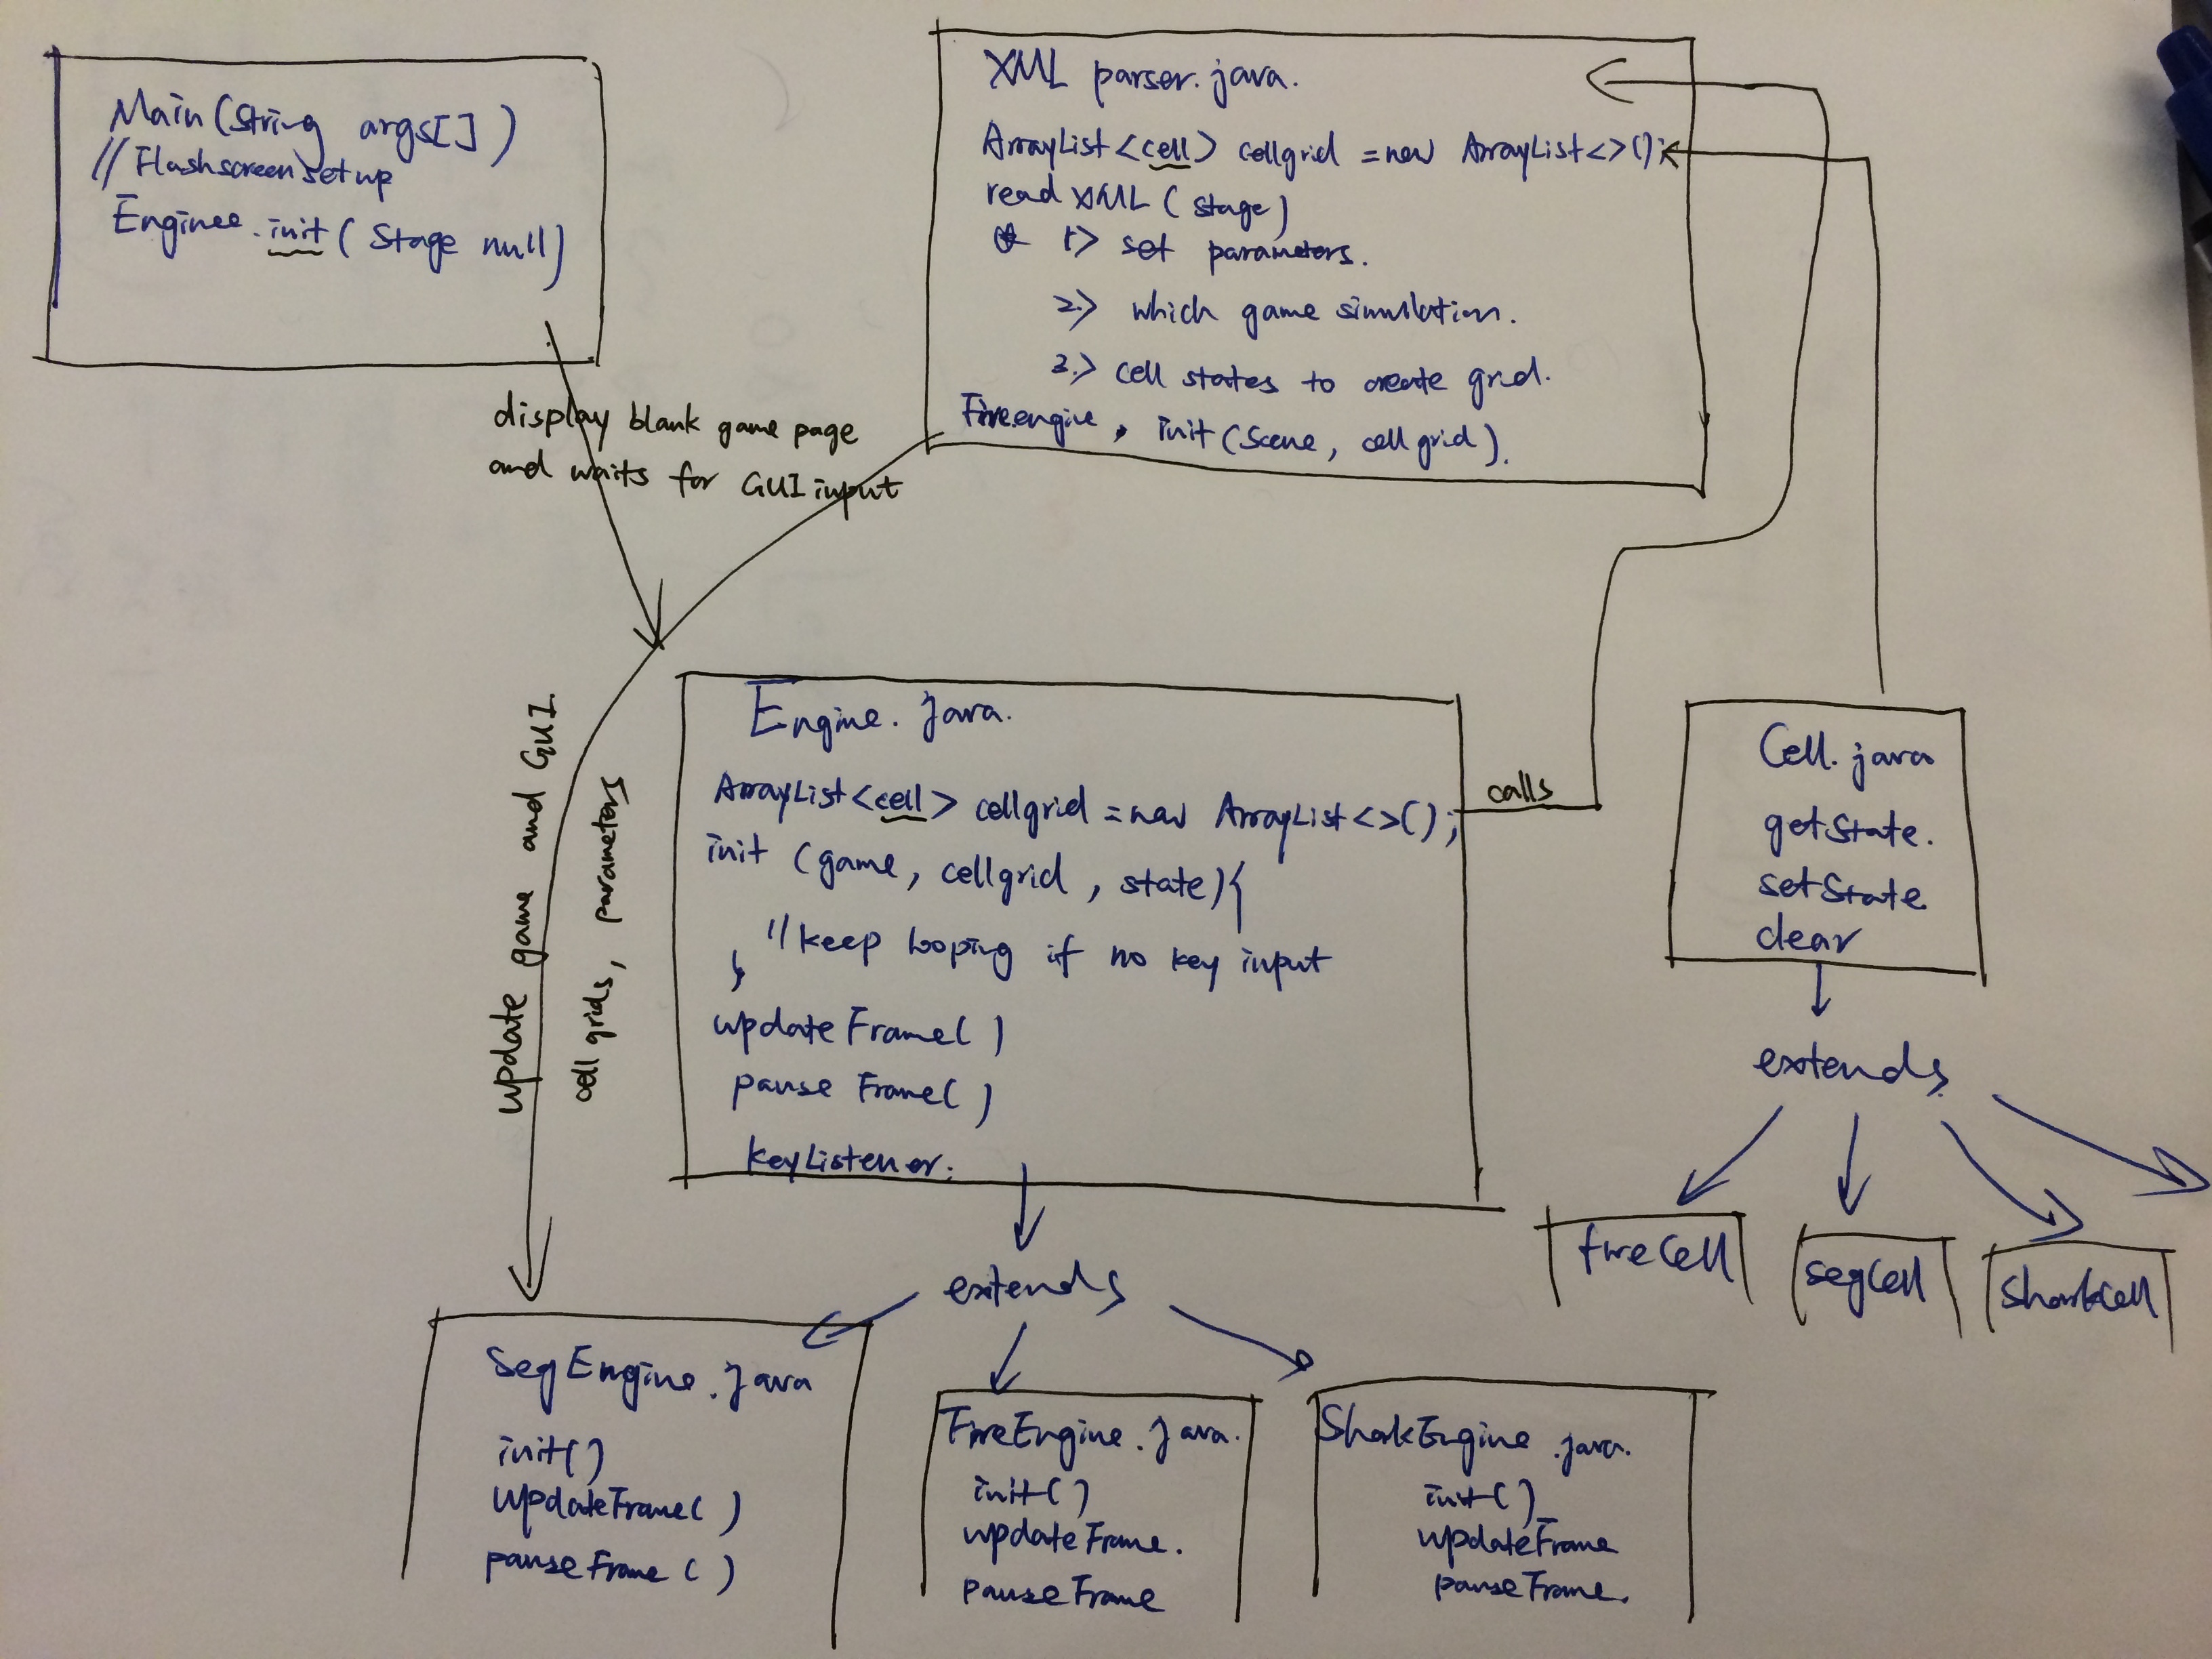 Main (String args[])
// Flashscreen set up
Enginee.init ( Stage null)
display blank game page
and waits for GUI input
XML parser.java.
ArrayList<cell> cellgrid = new ArrayList<>();
read XML ( stage)
1> set parameters.
2.> which game simulation.
3.> cell states to create grid.
Fireengine . init (Scene, cellgrid).
update game and GUI
cell grids, parameters
Engine. java.
ArrayList<cell> cellgrid = new ArrayList<>();
init (game, cellgrid, state){
// keep looping if no key input
}
update Frame( )
pause Frame( )
keyListener.
calls
Cell. java
getState.
setState
clear
extends
fireCell
segCell
SharkCell
extends
SegEngine.java
init()
updateFrame( )
pauseFrame ( )
FireEngine.java.
init( )
updateFrame.
pauseFrame
SharkEngine .java.
init( )
updateFrame
pauseFrame.